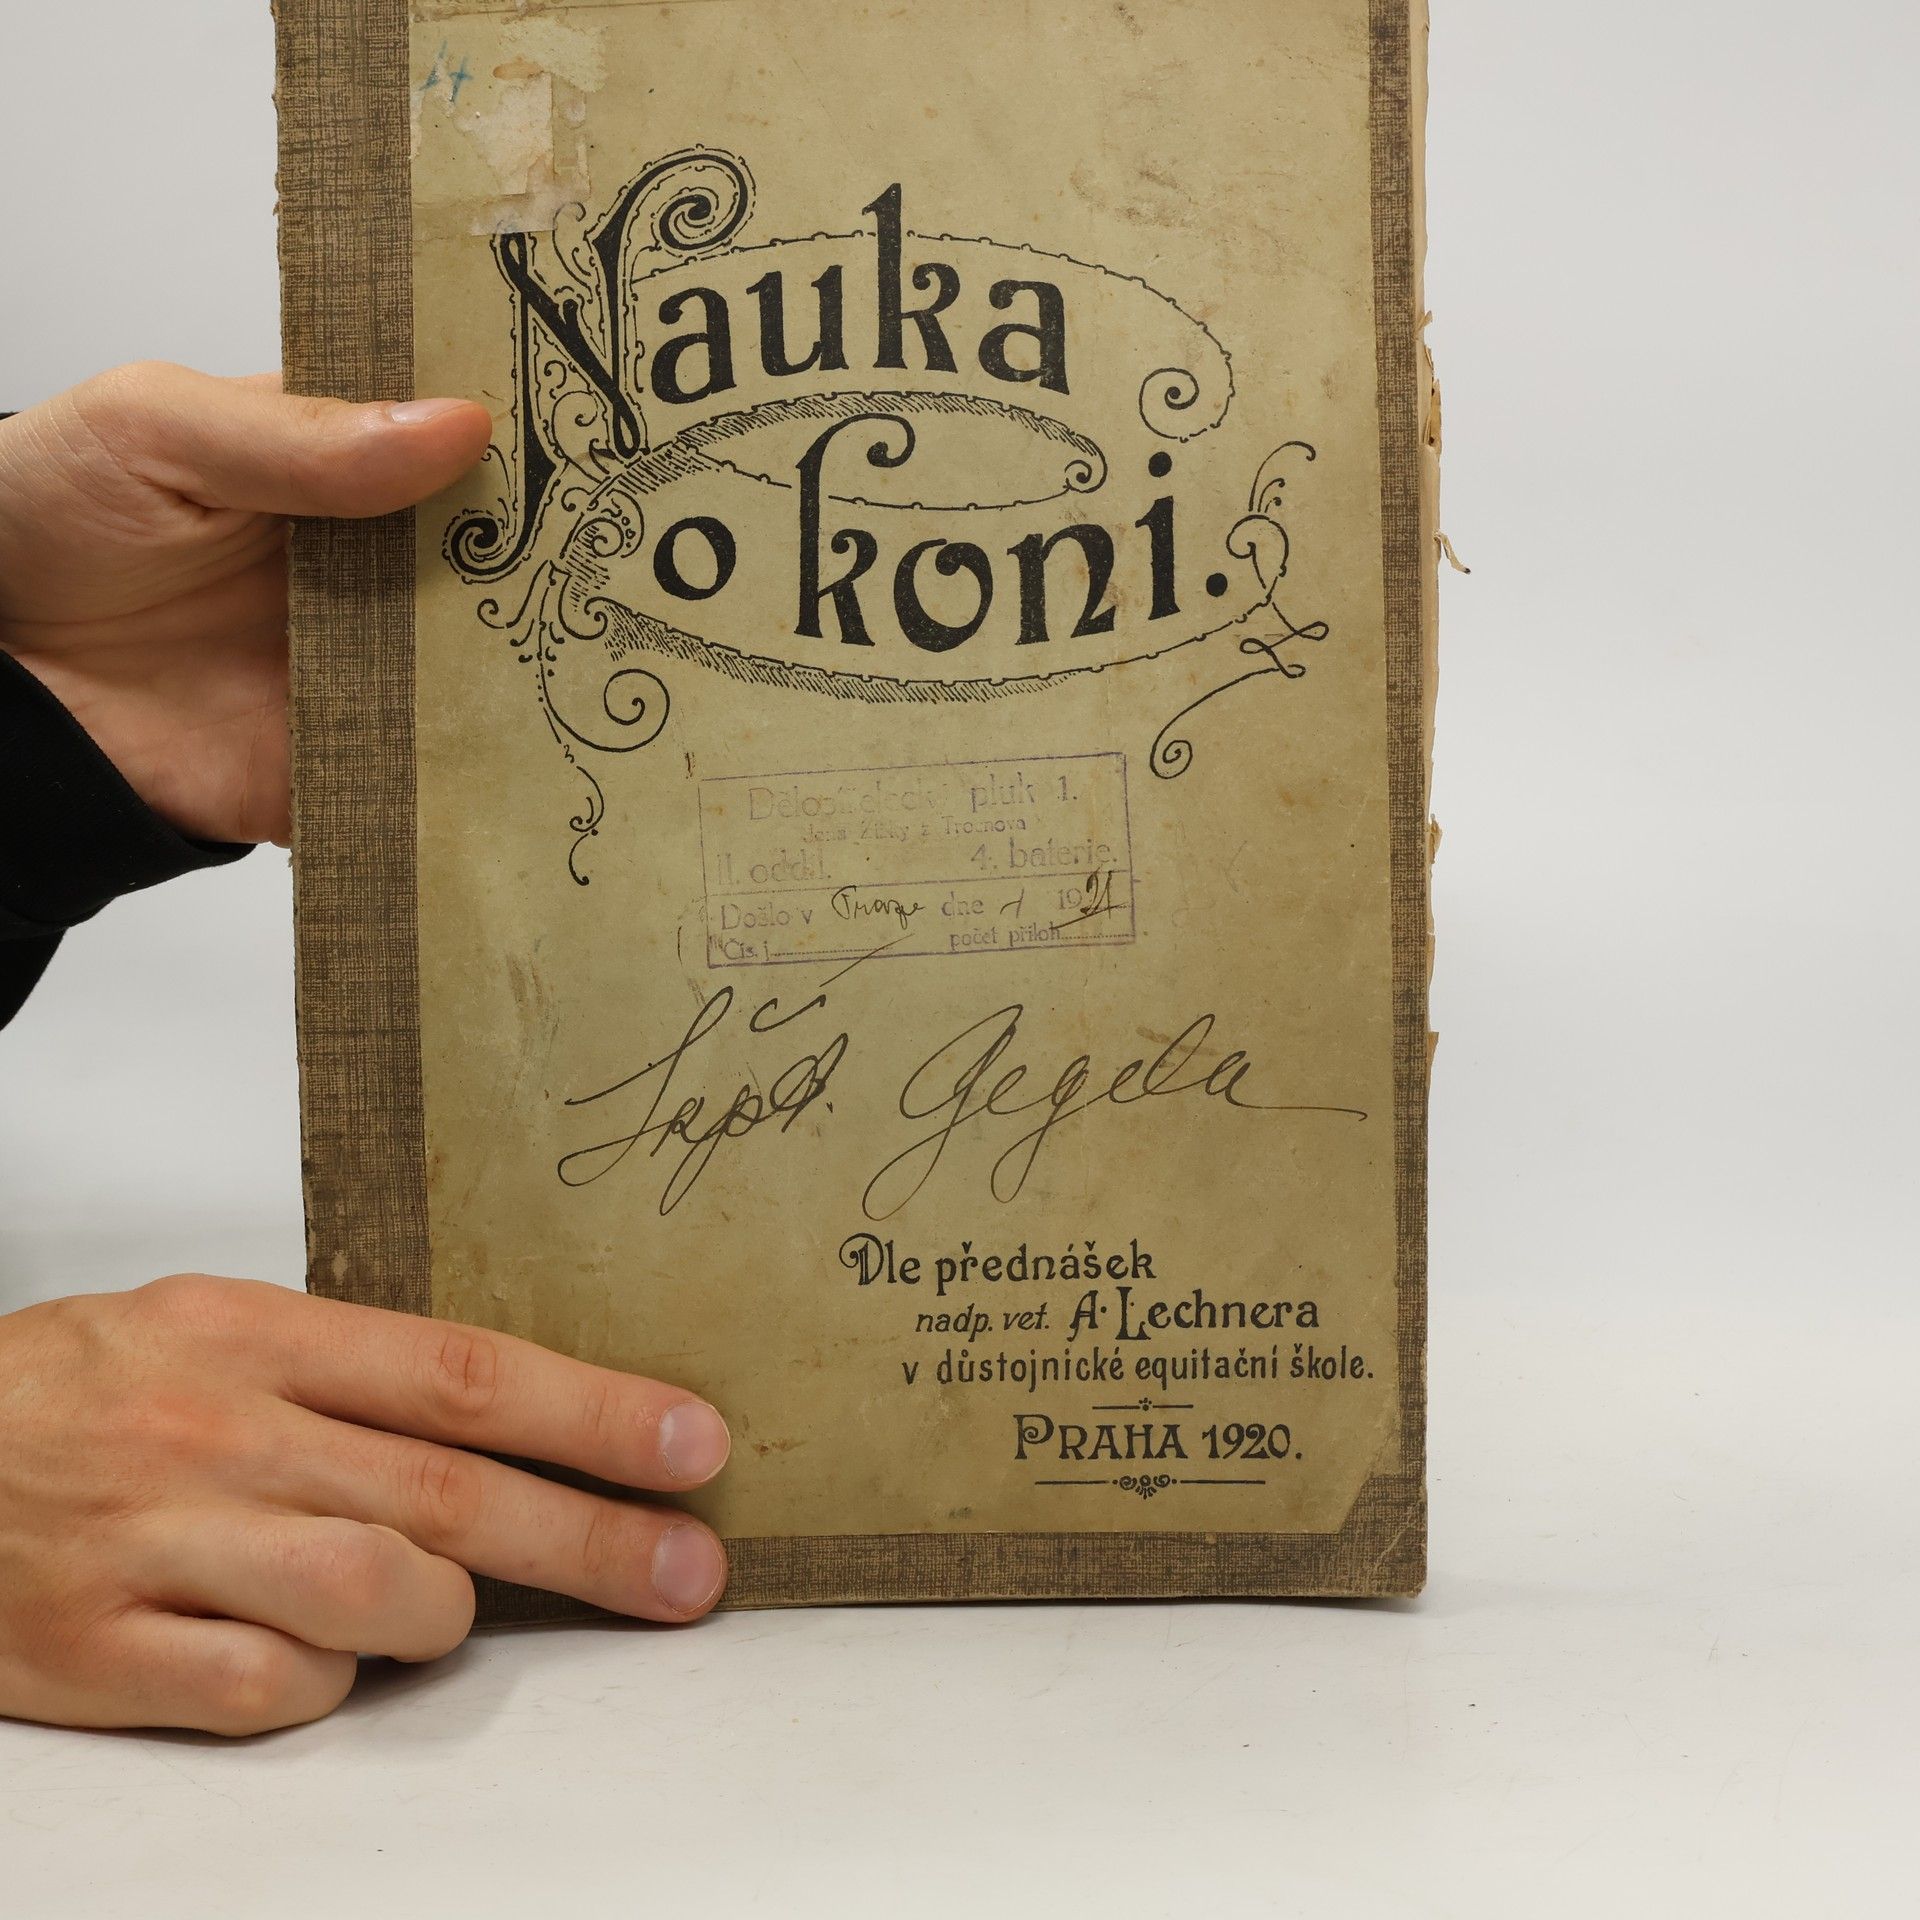 Nauka
o koni.
Dělostřelecký pluk 1.
Jana Žižky z Trocnova
II. oddíl. 4. baterie.
Došlo v Praze dne 1921
Čís. j. počet příloh
Gegela
Dle přednášek
nadp. vet. A. Lechnera
v důstojnické equitační škole.
PRAHA 1920.